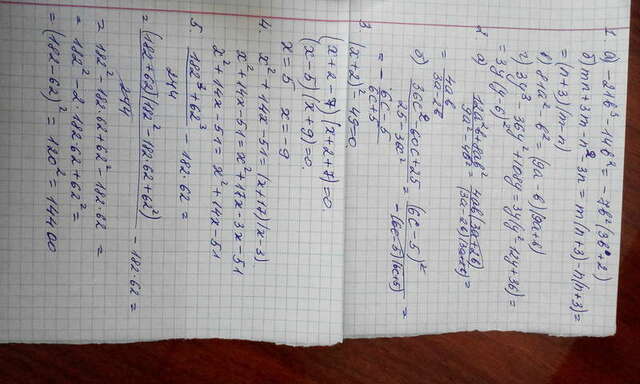 1. а) -21b³ - 14b² = -7b²(3b+2)
б) mn+3m-n²-3n = m(n+3)-n(n+3)=
=(n+3)(m-n)
в) 81a² - b² = (9a-b)(9a+b)
г) 3y³ - 36y² + 108y = 3y(y²-12y+36)=
= 3y(y-6)²
2 а) (12a²b+8ab²)/(9a²-4b²) = 4ab(3a+2b)/((3a-2b)(3a+2b)) =
= 4ab/(3a-2b)
б) (36c²-60c+25)/(25-36c²) = (6c-5)²/(-(6c-5)(6c+5)) =
= - (6c-5)/(6c+5)
3 (x+2)² - 49=0.
(x+2-7)(x+2+7)=0.
(x-5)(x+9)=0.
x=5 x=-9
4. x²+14x-51=(x+17)(x-3).
x²+14x-51=x²+17x-3x-51
x²+14x-51=x²+14x-51
5. (182³+62³)/244 - 182·62 =
= (182+62)(182²-182·62+62²)/244 - 182·62 =
= 182²-182·62+62²-182·62 =
= 182²-2·182·62+62² =
= (182-62)² = 120² = 14400